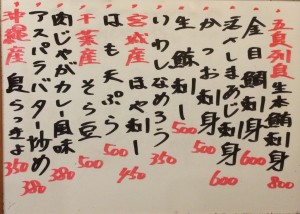 五島列島生本鮪刺身 800
金目鯛刺身 600
しまあじ刺身 600
かつお刺身 500
生 刺 500
いわしなめろう 350
宮城産 ほや刺 450
はも天ぷら 500
千葉産 そら豆 500
肉じゃがカレー風味 380
アスパラバター炒め 380
沖縄産 島らっきょ 350